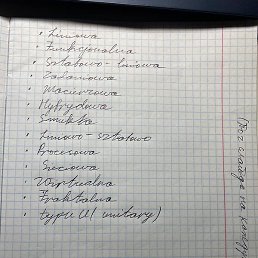 · Liniowa
· Funkcjonalna
· Sztabowo-liniowa
· Zadaniowa
· Macierzowa
· Hybrydowa
· Smukła
· Liniowo-sztabowo
· Procesowa
· Sieciowa
· Wirtualna
· Fraktalna
· typu (U unitary)